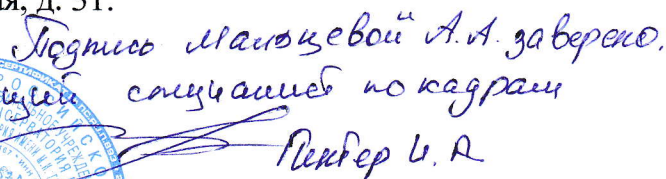 ая, д. 51.
Подпись Мальцевой А.А. заверено.
щий специалист по кадрам
Пинтер И. А